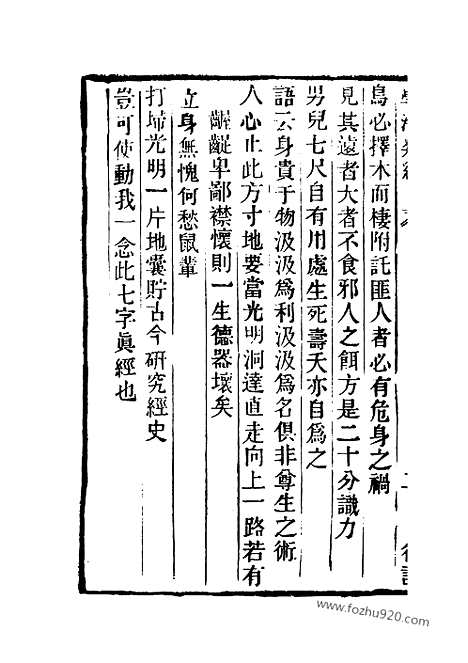 鳥必擇木而棲附託匪人者必有危身之禍
見其遠者大者不食邪人之餌方是二十分識力
男兒七尺自有用處生死壽夭亦自爲之
語云身貴于物汲汲爲利汲汲爲名俱非尊生之術
人心止此方寸地要當光明洞達直走向上一路若有
齷齪卑鄙襟懷則一生德器壞矣
立身無愧何愁鼠輩
打埽光明一片地囊貯古今研究經史
豈可使動我一念此七字眞經也
www.fozhu920.com